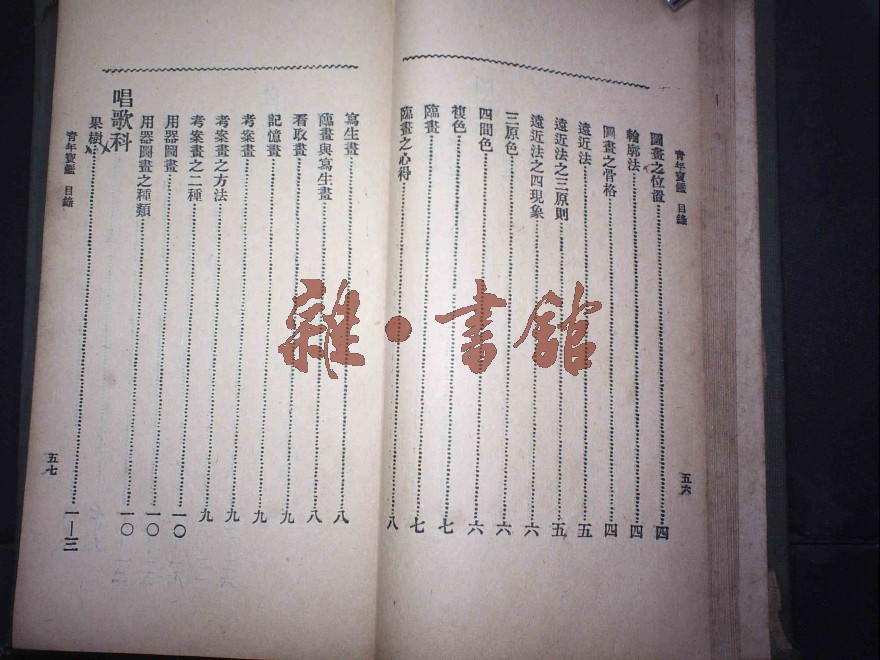 青年寶鑑 目錄
五六
圖畫之位置……四
輪廓法……四
圖畫之骨格……四
遠近法……五
遠近法之三原則……五
遠近法之四現象……六
三原色……六
四間色……六
複色……七
臨畫……七
臨畫之心得……八
寫生畫……八
臨畫與寫生畫……八
看取畫……九
記憶畫……九
考案畫……九
考案畫之方法……九
考案畫之二種……一〇
用器圖畫……一〇
用器圖畫之種類……一〇
唱歌科
果樹……一—三
青年寶鑑 目錄
五七
雜·書館